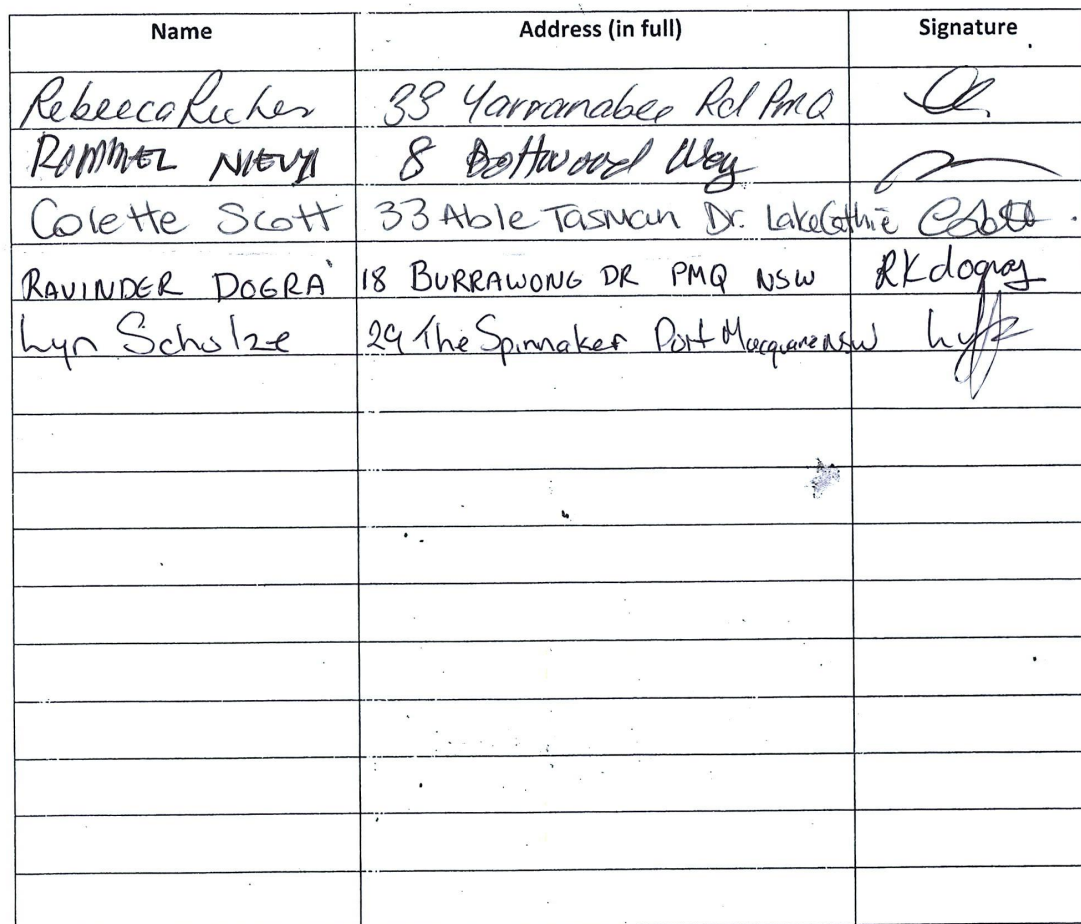 Name Address (in full) Signature
Rebecca 33 Yarranabee Rd PMQ
ROMMEL 8 Way
Colette Scott 33 Able Tasman Dr. Lake Cathie CScott
RAVINDER DOGRA 18 BURRAWONG DR PMQ NSW RKdogra
Lyn Schulze 29 The Spinnaker Port Macquarie NSW